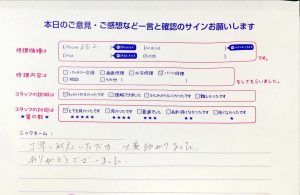 本日のご意見・ご感想など一言と確認のサインお願いします
修理機種は
iPhone SE2
Android
iPad
その他
です。
修理内容は
バッテリー交換
画面修理
水没修理
パネル修理
その他
としてもらいました。
スタッフの説明は
わかりやすかった
説明できました
わかりにくかった
難しかったです
スタッフの対応は
とても良かったです
良かったです
普通でした
良くなかったです
★の数
ニックネーム：
丁寧に対応いただき、大変助かりました。
ありがとうございました。